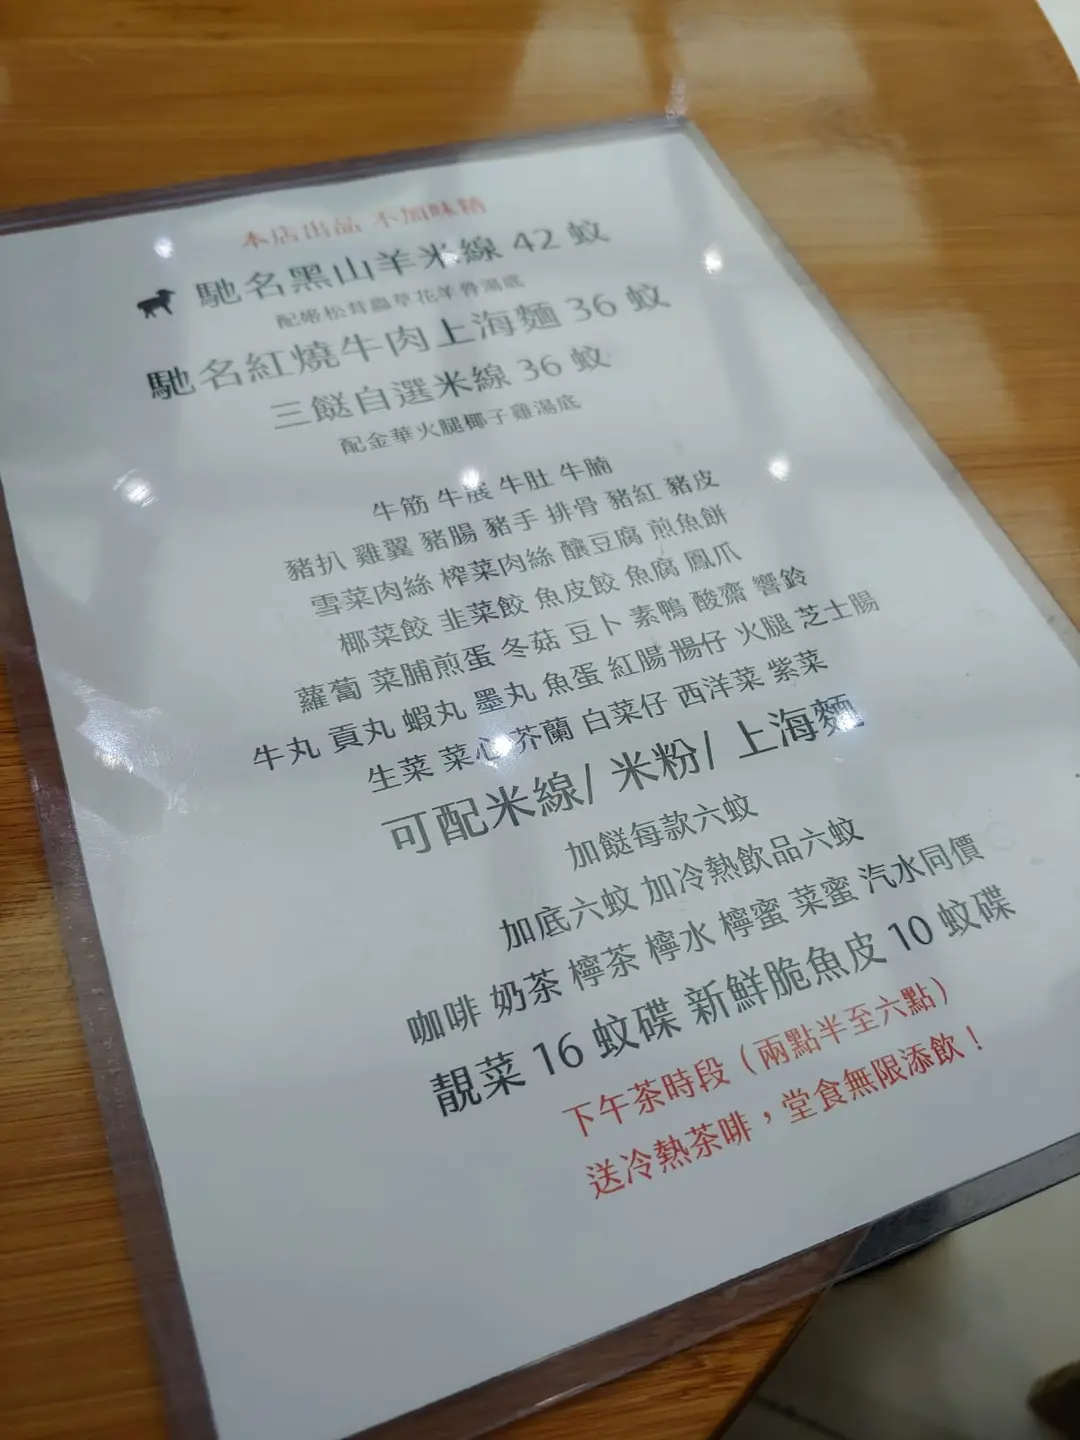 本店出品 不加味精
馳名黑山羊米線 42 蚊
配姬松茸蟲草花羊骨湯底
馳名紅燒牛肉上海麵 36 蚊
三餸自選米線 36 蚊
配金華火腿椰子雞湯底
牛筋 牛展 牛肚 牛腩
豬扒 雞翼 豬腸 豬手 排骨 豬紅 豬皮
雪菜肉絲 榨菜肉絲 釀豆腐 煎魚餅
椰菜餃 韭菜餃 魚皮餃 魚腐 鳳爪
蘿蔔 菜脯煎蛋 冬菇 豆卜 素鴨 酸齋 響鈴
牛丸 貢丸 蝦丸 墨丸 魚蛋 紅腸 腸仔 火腿 芝士腸
生菜 菜心 芥蘭 白菜仔 西洋菜 紫菜
可配米線/ 米粉/ 上海麵
加餸每款六蚊
加底六蚊 加冷熱飲品六蚊
咖啡 奶茶 檸茶 檸水 檸蜜 菜蜜 汽水同價
靚菜 16 蚊碟 新鮮脆魚皮 10 蚊碟
下午茶時段（兩點半至六點）
送冷熱茶啡，堂食無限添飲！